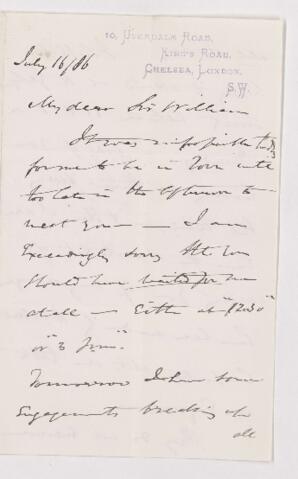 10, Overdale Road,
King's Road,
Chelsea, London,
S.W.
July 16/86
My dear Sir William
It was impossible
for me to be in Town until
too late in the afternoon to
meet you — I am
Exceedingly sorry that you
should have waited for me
at all — Either at "12.30"
or "3 p.m."
Tomorrow I have some
Engagements breaking up
all